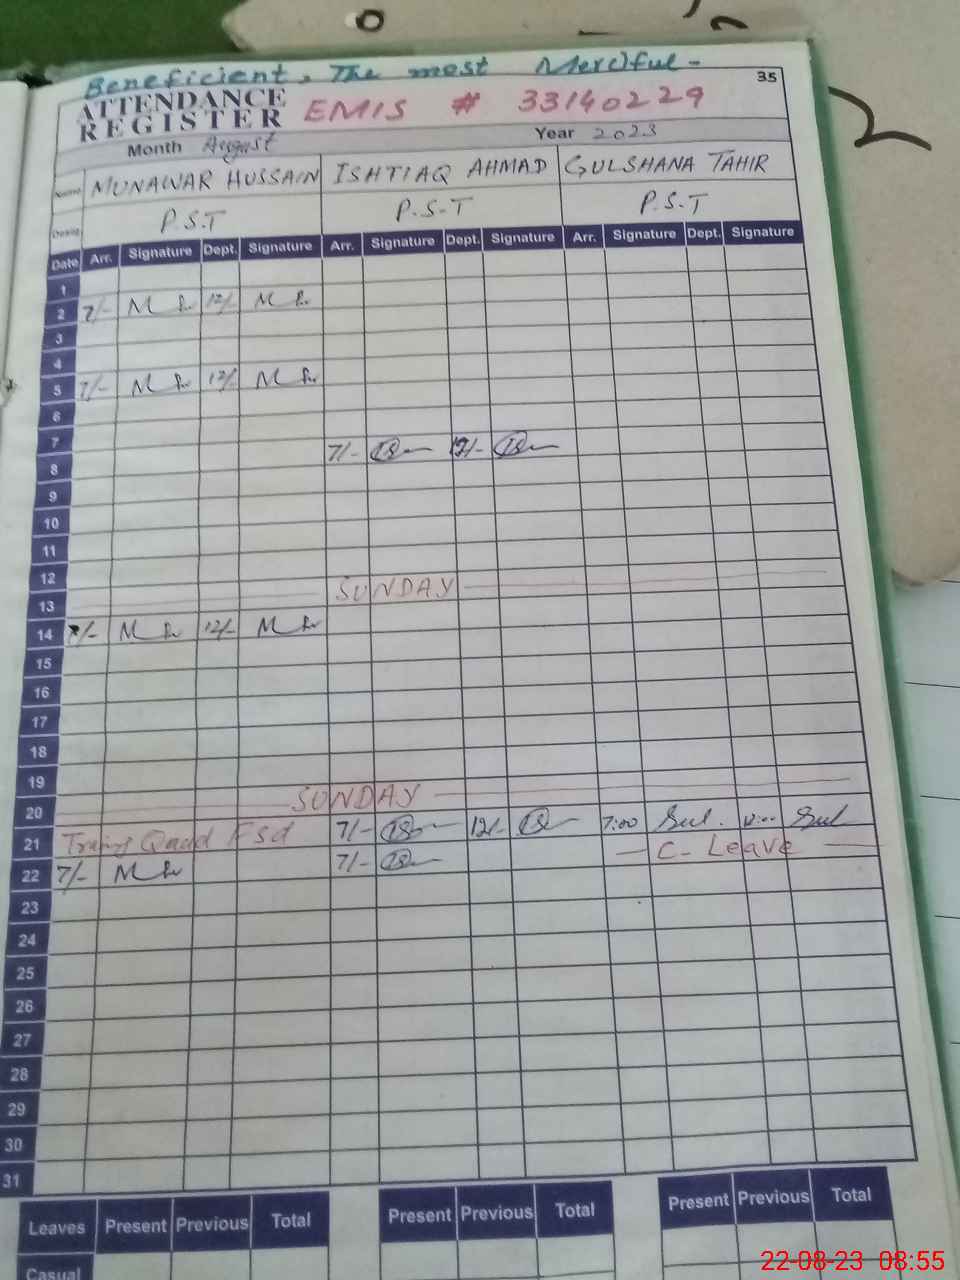 Beneficient, The most Merciful -
35
ATTENDANCE
REGISTER
EMIS # 33140229
Month August Year 2023
Name MUNAWAR HUSSAIN ISHTIAQ AHMAD GULSHANA TAHIR
Desig. P.S.T P.S.T P.S.T
Date Arr. Signature Dept. Signature Arr. Signature Dept. Signature Arr. Signature Dept. Signature
1
2 7/- 12/-
3
4
5 7/- 12/-
6
7
8 7/- 12/-
9
10
11
12
13 SUNDAY
14 7/- 12/-
15
16
17
18
19
20 SUNDAY
21 Fsd 7/- 12/- 7:00 Gul. Gul
22 7/- 7/- C- Leave
23
24
25
26
27
28
29
30
31
Leaves Present Previous Total Present Previous Total Present Previous Total
Casual
22-08-23 08:55